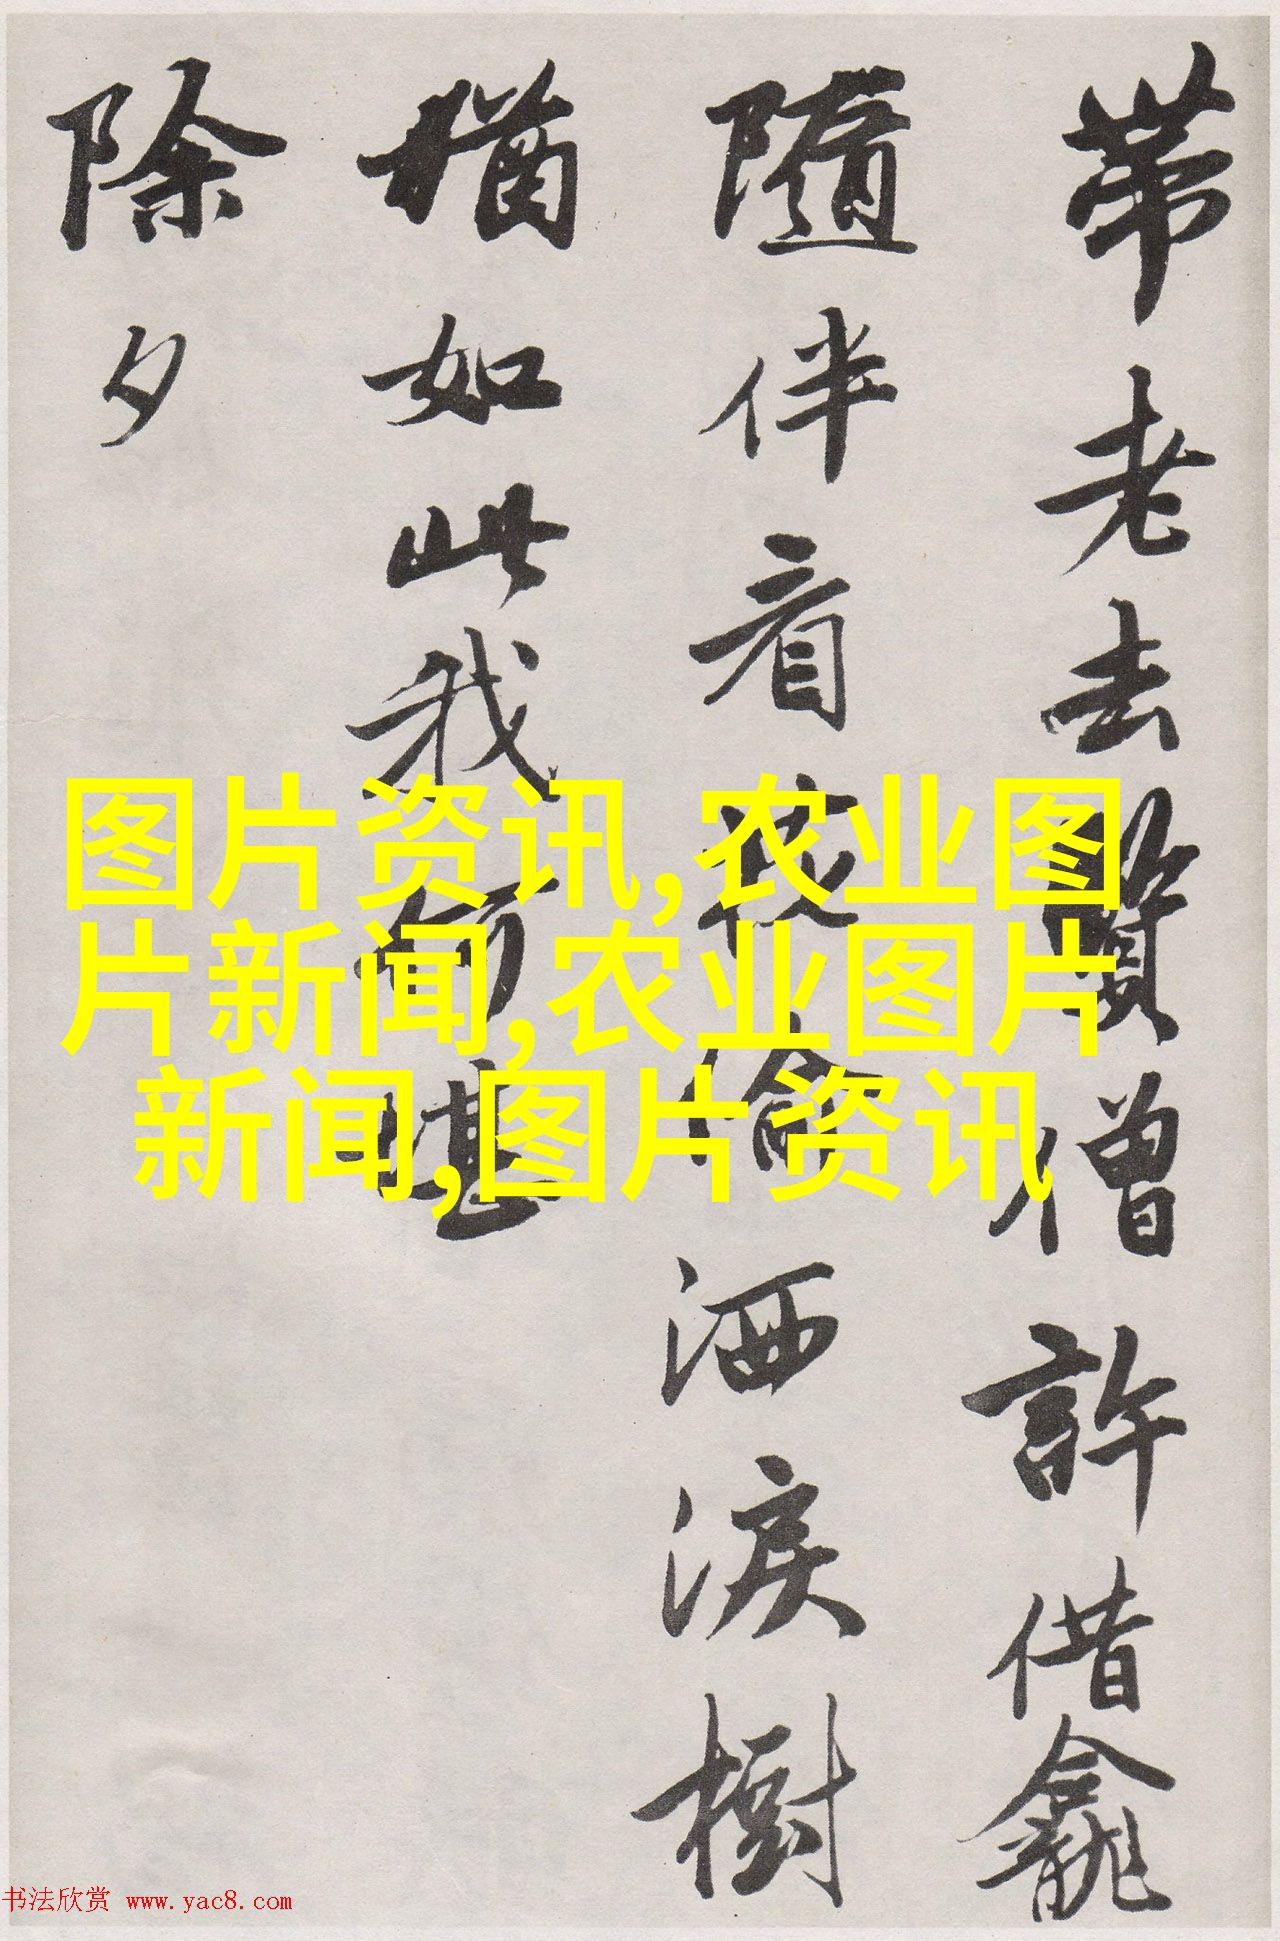 帶老去賢僧許借龕
隨伴看偷洒淚樹
猶如此我何堪
除夕
图片资讯,农业图
片新闻,农业图片
新闻,图片资讯
书法欣赏 www.yac8.com